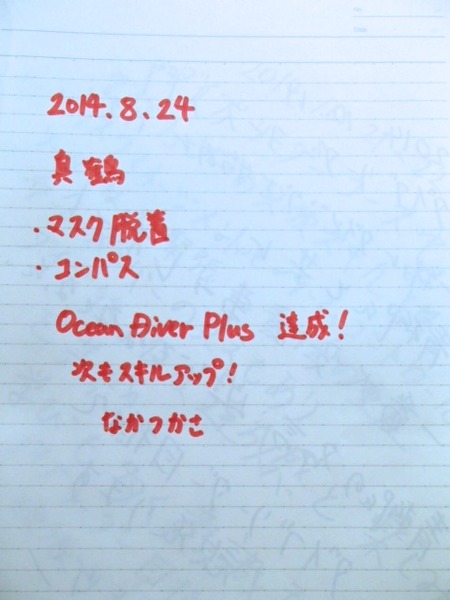 2014.8.24
真鶴
・マスク脱着
・コンパス
Ocean Diver Plus 達成!
次もスキルアップ!
なかつかさ